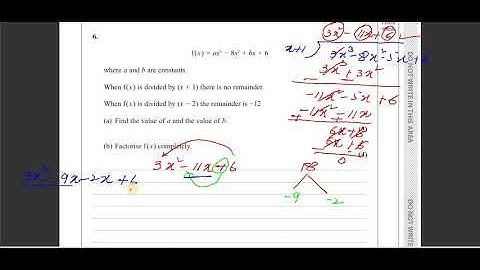 6.
f(x) = ax³ − 8x² + bx + 6
where a and b are constants
When f(x) is divided by (x + 1) there is no remainder.
When f(x) is divided by (x − 2) the remainder is −12
(a) Find the value of a and the value of b.
(b) Factorise f(x) completely.
3x² − 11x + 6
3x² − 9x − 2x + 6
3x² − 11x + 6
x+1
3x³ − 8x² − 5x + 6
3x³ + 3x²
−11x² − 5x + 6
−11x² − 11x
6x + 6
6x + 6
0
18
−9
−2
DO NOT WRITE IN THIS AREA
DO NOT WRITE